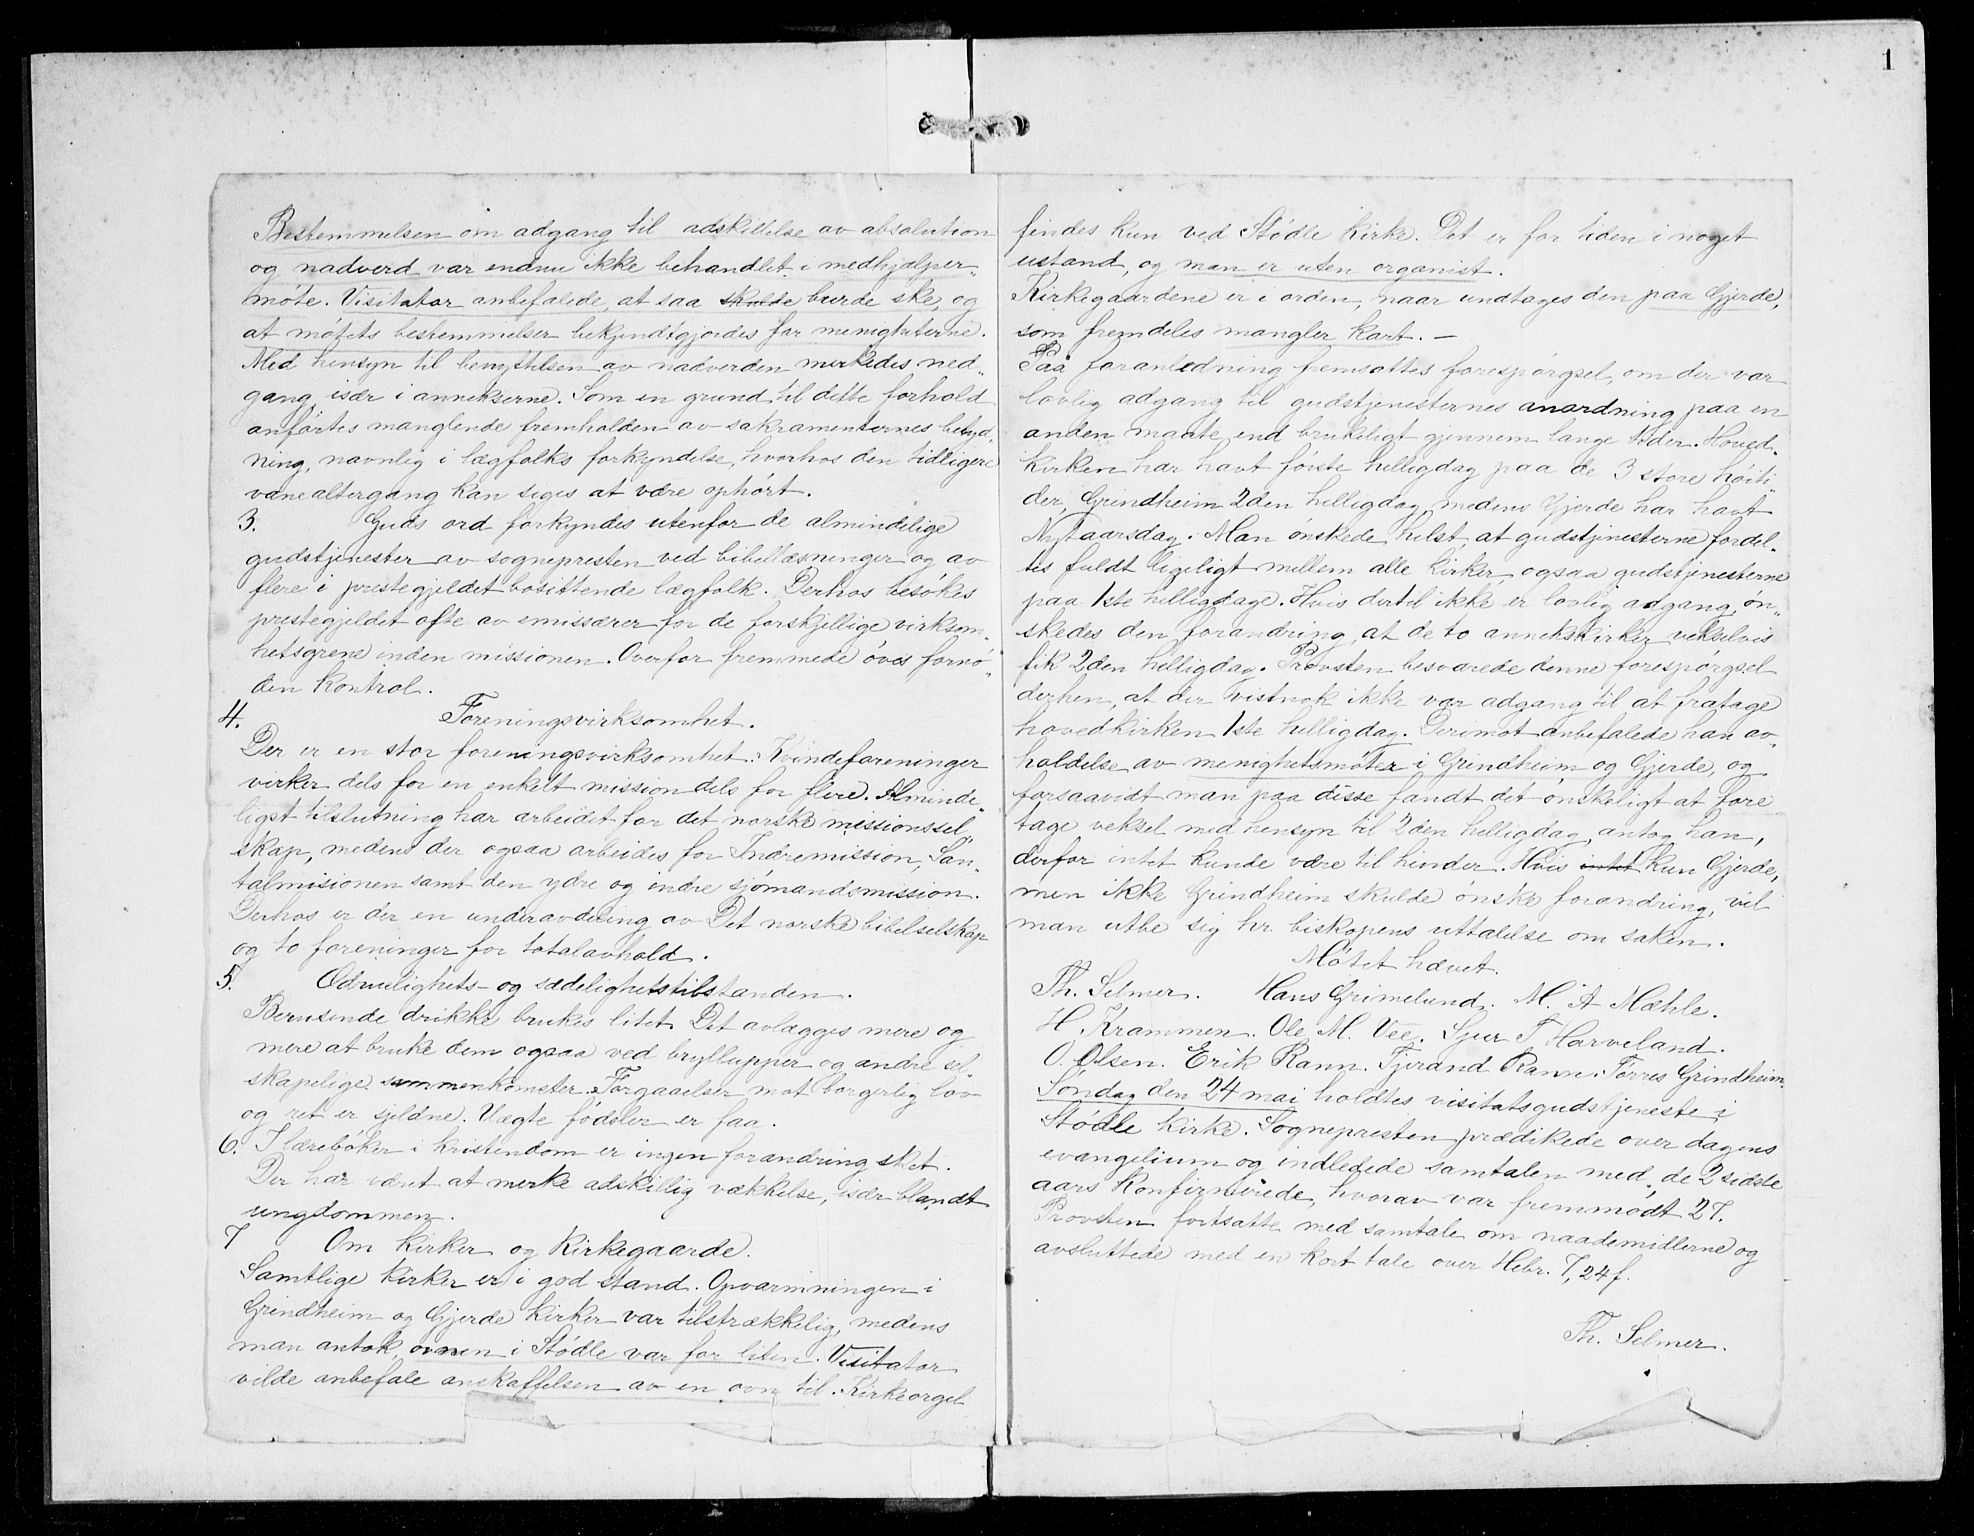 1
Bestemmelsen om adgang til adskillelse av absolution
og nadverd var endnu ikke behandlet i medhjælper-
møte. Visitator anbefalede, at saa skulde burde ske, og
at møtets bestemmelser bekjendtgjordes for menigheterne.
Med hensyn til benyttelsen av nadverden merkedes ned-
gang, især i annekserne. Som en grund til dette forhold
anførtes manglende fremholden av sakramenternes betyd-
ning, navnlig i lægfolks forkyndelse, hvorhos den tidligere
vanealtergang kan siges at være ophørt.
3. Guds ord forkyndes utenfor de almindelige
gudstjenester av sognepresten ved bibellæsninger og av
flere i prestegjeldet bosittende lægfolk. Derhos besøkes
prestegjeldet ofte av emissærer for de forskjellige virksom-
hetsgrene inden missionen. Overfor fremmede øves fornø-
den kontrol.
4. Foreningsvirksomhet.
Der er en stor foreningsvirksomhet. Kvindeforeninger
virker dels for en enkelt mission dels for flere. Alminde-
ligst tilslutning har arbeidet for det norske missionssel-
skap, medens der ogsaa arbeides for Indremission, San-
talmisionen samt den ydre og indre sjømandsmission.
Derhos er der en underavdeling av Det norske bibelselskap
og to foreninger for totalavhold.
5. Ædruelighets- og sædelighetstilstanden.
Berusende drikke brukes litet. Det avlægges mere og
mere at bruke dem ogsaa ved bryllupper og andre sel-
skapelige sammenkomster. Forgaaelser mot borgerlig lov
og ret er sjeldne. Uægte fødsler er faa.
6. I lærebøker i kristendom er ingen forandring sket.
Der har været at merke adskillig vækkelse, især blandt
ungdommen.
7 Om kirker og Kirkegaarde.
Samtlige kirker er i god stand. Opvarmningen i
Grindheim og Gjerde kirker var tilstrækkelig, medens
man antok, ovnen i Stødle var for liten. Visitator
vilde anbefale anskaffelsen av en ovn til. Kirkeorgel
findes kun ved Stødle kirke. Det er for tiden i noget
ustand, og man er uten organist.
Kirkegaardene er i orden, naar undtages den paa Gjerde,
som fremdeles mangler kart. —
Paa foranledning fremsattes forespørgsel, om der var
lovlig adgang til gudstjenesternes anordning paa en
anden maate end brukeligt gjennem lange tider. Hoved-
kirken har havt første helligdag paa de 3 store høiti-
der, Grindheim 2den helligdag, medens Gjerde har havt
Nytaarsdag. Man ønskede helst, at gudstjenesterne fordel-
tes fuldt ligeligt mellem alle kirker, ogsaa gudstjenesterne
paa 1ste helligdage. Hvis dertil ikke er lovlig adgang, øn-
skedes den forandring, at de to annekskirker vekselvis
fik 2den helligdag. Provsten besvarede denne forespørgsel
derhen, at der vistnok ikke var adgang til at fratage
hovedkirken 1ste helligdag. Derimot anbefalede han av-
holdelse av menighetsmøter i Grindheim og Gjerde, og
forsaavidt man paa disse fandt det ønskeligt at fore
tage veksel med hensyn til 2den helligdag, antog han,
derfor intet kunde være til hinder. Hvis intet kun Gjerde,
men ikke Grindheim skulde ønske forandring, vil
man utbe sig hr. biskopens uttalelse om saken.
Møtet hævet.
Th. Selmer. Hans Grimelund. M. A Mæhle.
H Krammen. Ole M. Vee. Sjur T Harveland.
O. Olsen. Erik Rann. Tjerand Rann. Tørres Grindheim.
Søndag den 24 mai holdtes visitatsgudstjeneste i
Stødle kirke. Sognepresten prædikede over dagens
evangelium og indledede samtalen med de 2 sidste
aars konfirmerede, hvorav var fremmødt 27.
Provsten fortsatte med samtale om naademidlerne og
avsluttede med en kort tale over Hebr. 7, 24 f.
Th. Selmer.